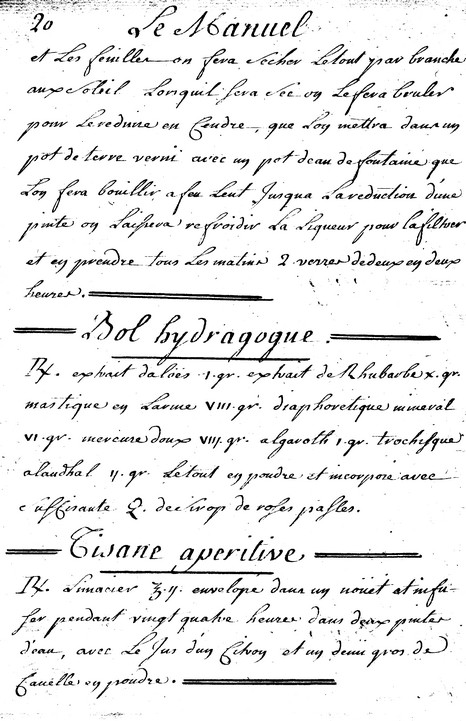 20 Le Manuel
et Les feuilles on fera secher Letout par branche
aux Soleil Lorsquil sera sec on Lefera bruler
pour Lereduire en Cendre, que Lon mettra dans un
pot de terre verni avec un pot deau de fontaine que
Lon fera bouillir a feu Lent Jusqua Lareduction d'une
pinte on Laissera refroidir La Liqueur pour lafiltrer
et en prendre tous Les matins 2 verres dedeux en deux
heures.
Bol hydragogue.
℞. extrait daloës 1.gr. extrait de Rhubarbe x.gr.
mastique en Larme VIII.gr. diaphoretique mineral
VI.gr. mercure doux VIII.gr. algaroth 1.gr. trochisque
alandhal 11.gr. Letout en poudre et incorpore avec
suffisante Q. de sirop de roses pasles.
Tisane aperitive
℞. Limacier ʒ.ij. envelope dans un nouet et infu-
ser pendant vingt quatre heures dans deux pintes
d'eau, avec Le Jus d'un Citron et un demi gros de
Canelle en poudre.